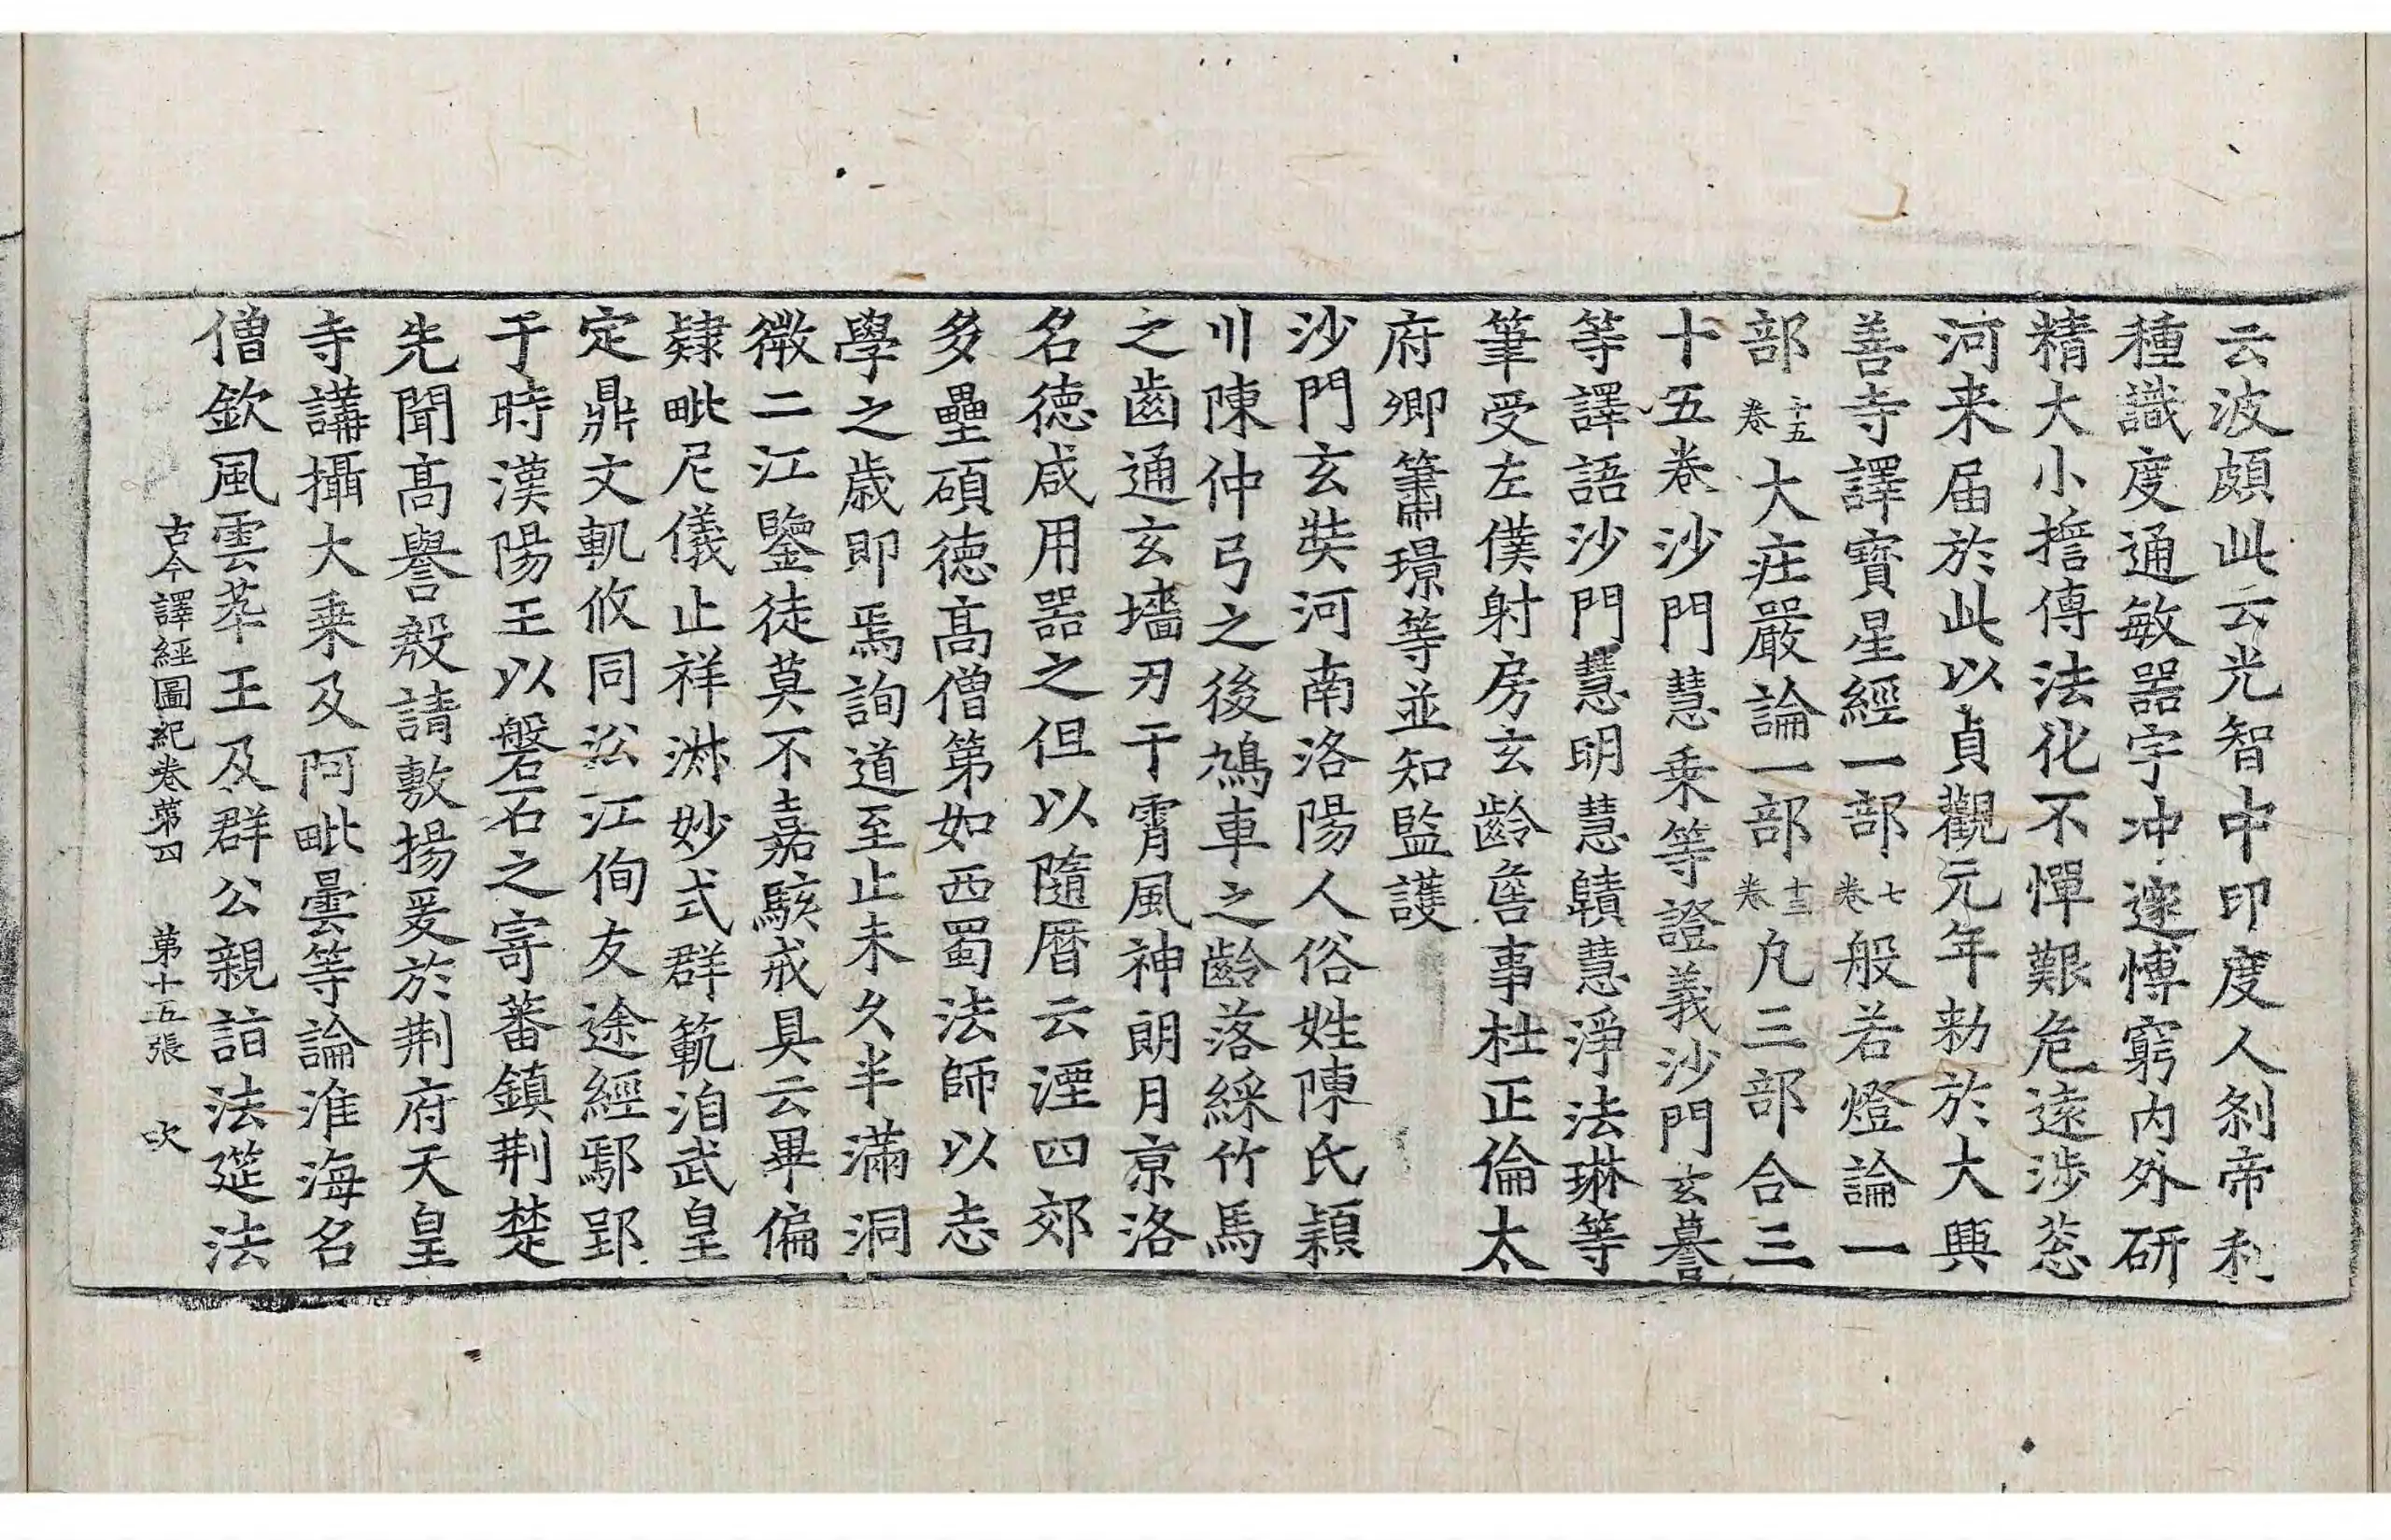 云波頗此云光智中印度人刹帝利
種識度通敏器宇冲邃博窮内外研
精大小擔傳法化不憚艱危遠涉葱
河来届於此以貞觀元年勅於大興
善寺譯寶星經一部七卷般若燈論一
部十五卷大莊嚴論一部十三卷凡三部合三
十五卷沙門慧乗等證義沙門玄謩
等譯語沙門慧明慧賾慧淨法琳等
筆受左僕射房玄齡詹事杜正倫太
府卿簫璟等並知監護
沙門玄奘河南洛陽人俗姓陳氏穎
川陳仲弓之後鳩車之齡落綵竹馬
之齒通玄墻刃干霄風神朗月京洛
名德咸用器之但以隨曆云湮四郊
多壘碩德髙僧第如西蜀法師以志
學之歳即焉詢道至止未久半滿洞
微二江鑒徒莫不嘉駭戒具云畢偏
肄毗尼儀止祥淋妙式群範洎武皇
定鼎文軌攸同㳂江徇友途經鄢郢
于時漢陽王以磐石之寄蕃鎮荆楚
先聞髙譽殷請敷揚爰於荆府天皇
寺講攝大乗及阿毗曇等論淮海名
僧欽風雲萃王及群公親詣法筵法
古今譯經圖紀卷第四 第十五張 吹